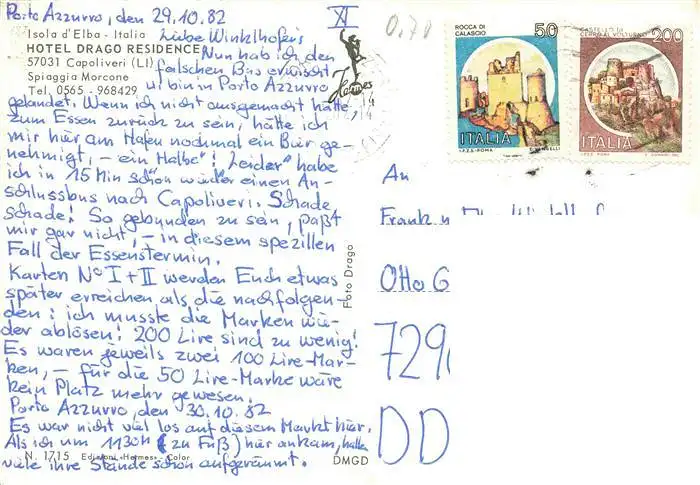 Porto Azzurro, den 29.10.82
XI
0,70
Isola d'Elba - Italia
Liebe Winklhofer's
HOTEL DRAGO RESIDENCE
57031 Capoliveri (LI)
Spiaggia Morcone
Tel. 0565 - 968429
Hermes
Nun hab ich den
falschen Bus erwischt
u. bin in Porto Azzurro
gelandet. Wenn ich nicht ausgemacht hätte,
zum Essen zurück zu sein, hätte ich
mir hier am Hafen nochmal ein Bier ge-
nehmigt, - ein "Halbe"! Leider habe
ich in 15 Min schon wieder einen An-
schlussbus nach Capoliveri. Schade
Schade! So gebunden zu sein, paßt
mir gar nicht, - in diesem speziellen
Fall der Essenstermin.
Karten N° I + II werden Euch etwas
später erreichen als die nachfolgen-
den: ich musste die Marken wie-
der ablösen! 200 Lire sind zu wenig!
Es waren jeweils zwei 100 Lire-Mar-
ken, - für die 50 Lire-Marke wäre
kein Platz mehr gewesen.
Porto Azzurro, den 30.10.82
Es war nicht viel los auf diesem Markt hier.
Als ich um 1130h (zu Fuß) hier ankam, hatten
viele ihre Stände schon aufgeräumt.
N. 1715 Edizioni «Hermes» - Color
DMGD
Foto Drago
ROCCA DI
CALASCIO
50
ITALIA
I.P.Z.S. - ROMA
CASTELLO DI
CERRO AL VOLTURNO
200
ITALIA
I.P.Z.S. ROMA
An
Frank
Otto G
729
DD